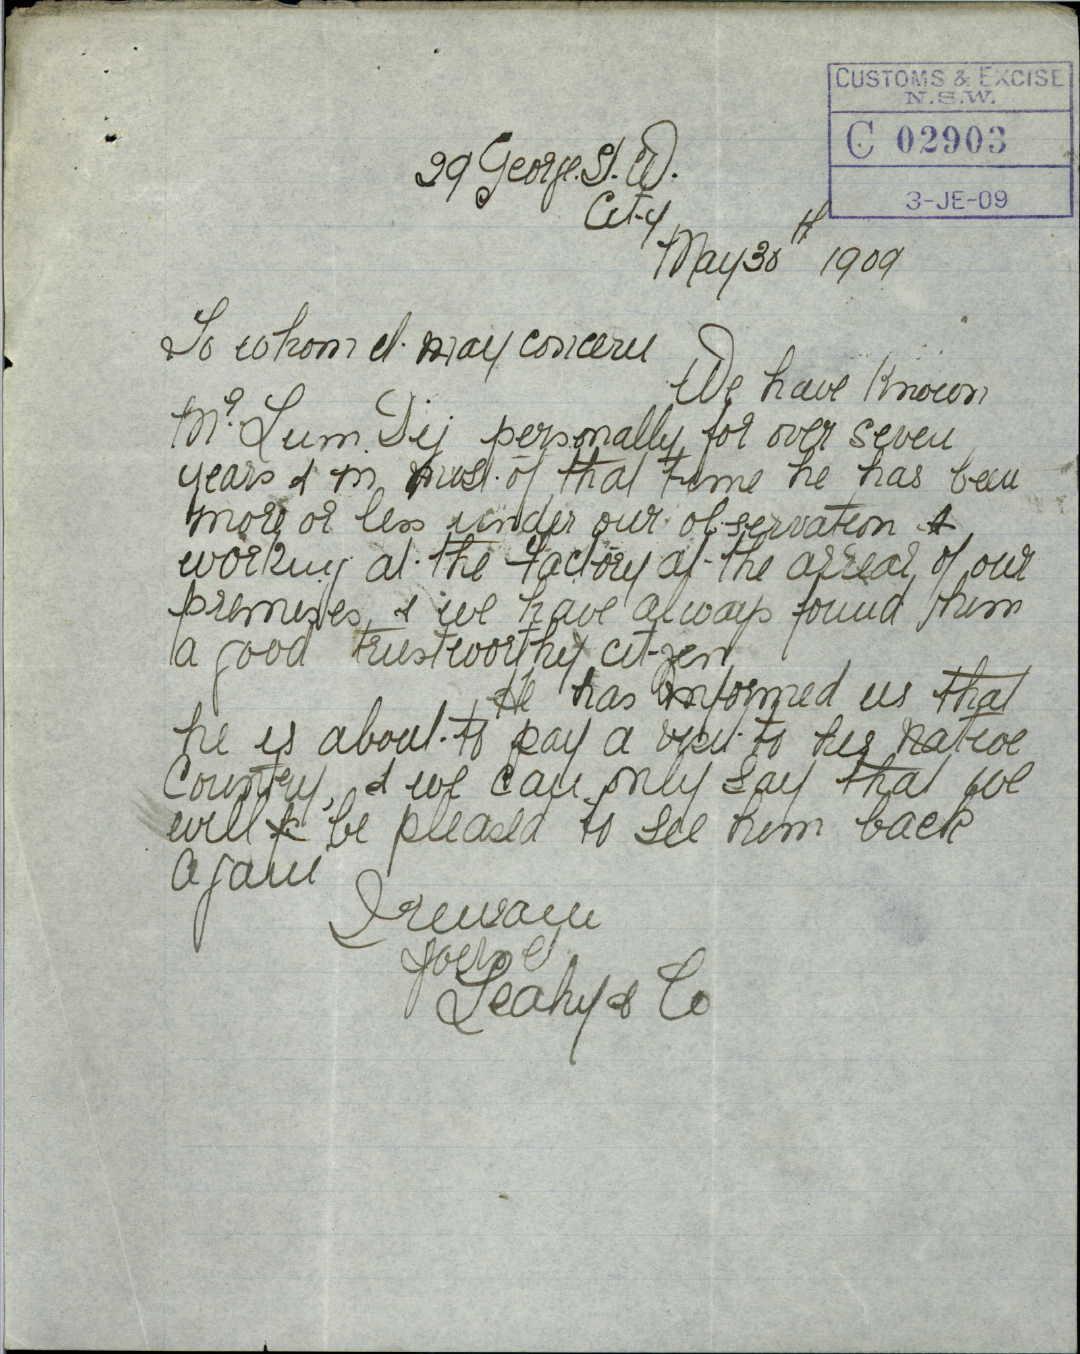 CUSTOMS & EXCISE
N.S.W.
C 02903
3-JE-09
29 George. St. W.
City
May 30th 1909
To whom it may concern
We have known
Mr. Lum Dij personally for over seven
years & in most of that time he has been
more or less under our observation &
working at the factory at the arrear of our
premises, & we have always found him
a good trustworthy citizen
He has informed us that
he is about to pay a visit to his native
Country, & we can only say that we
will be pleased to see him back
again
I remain
Leahy & Co